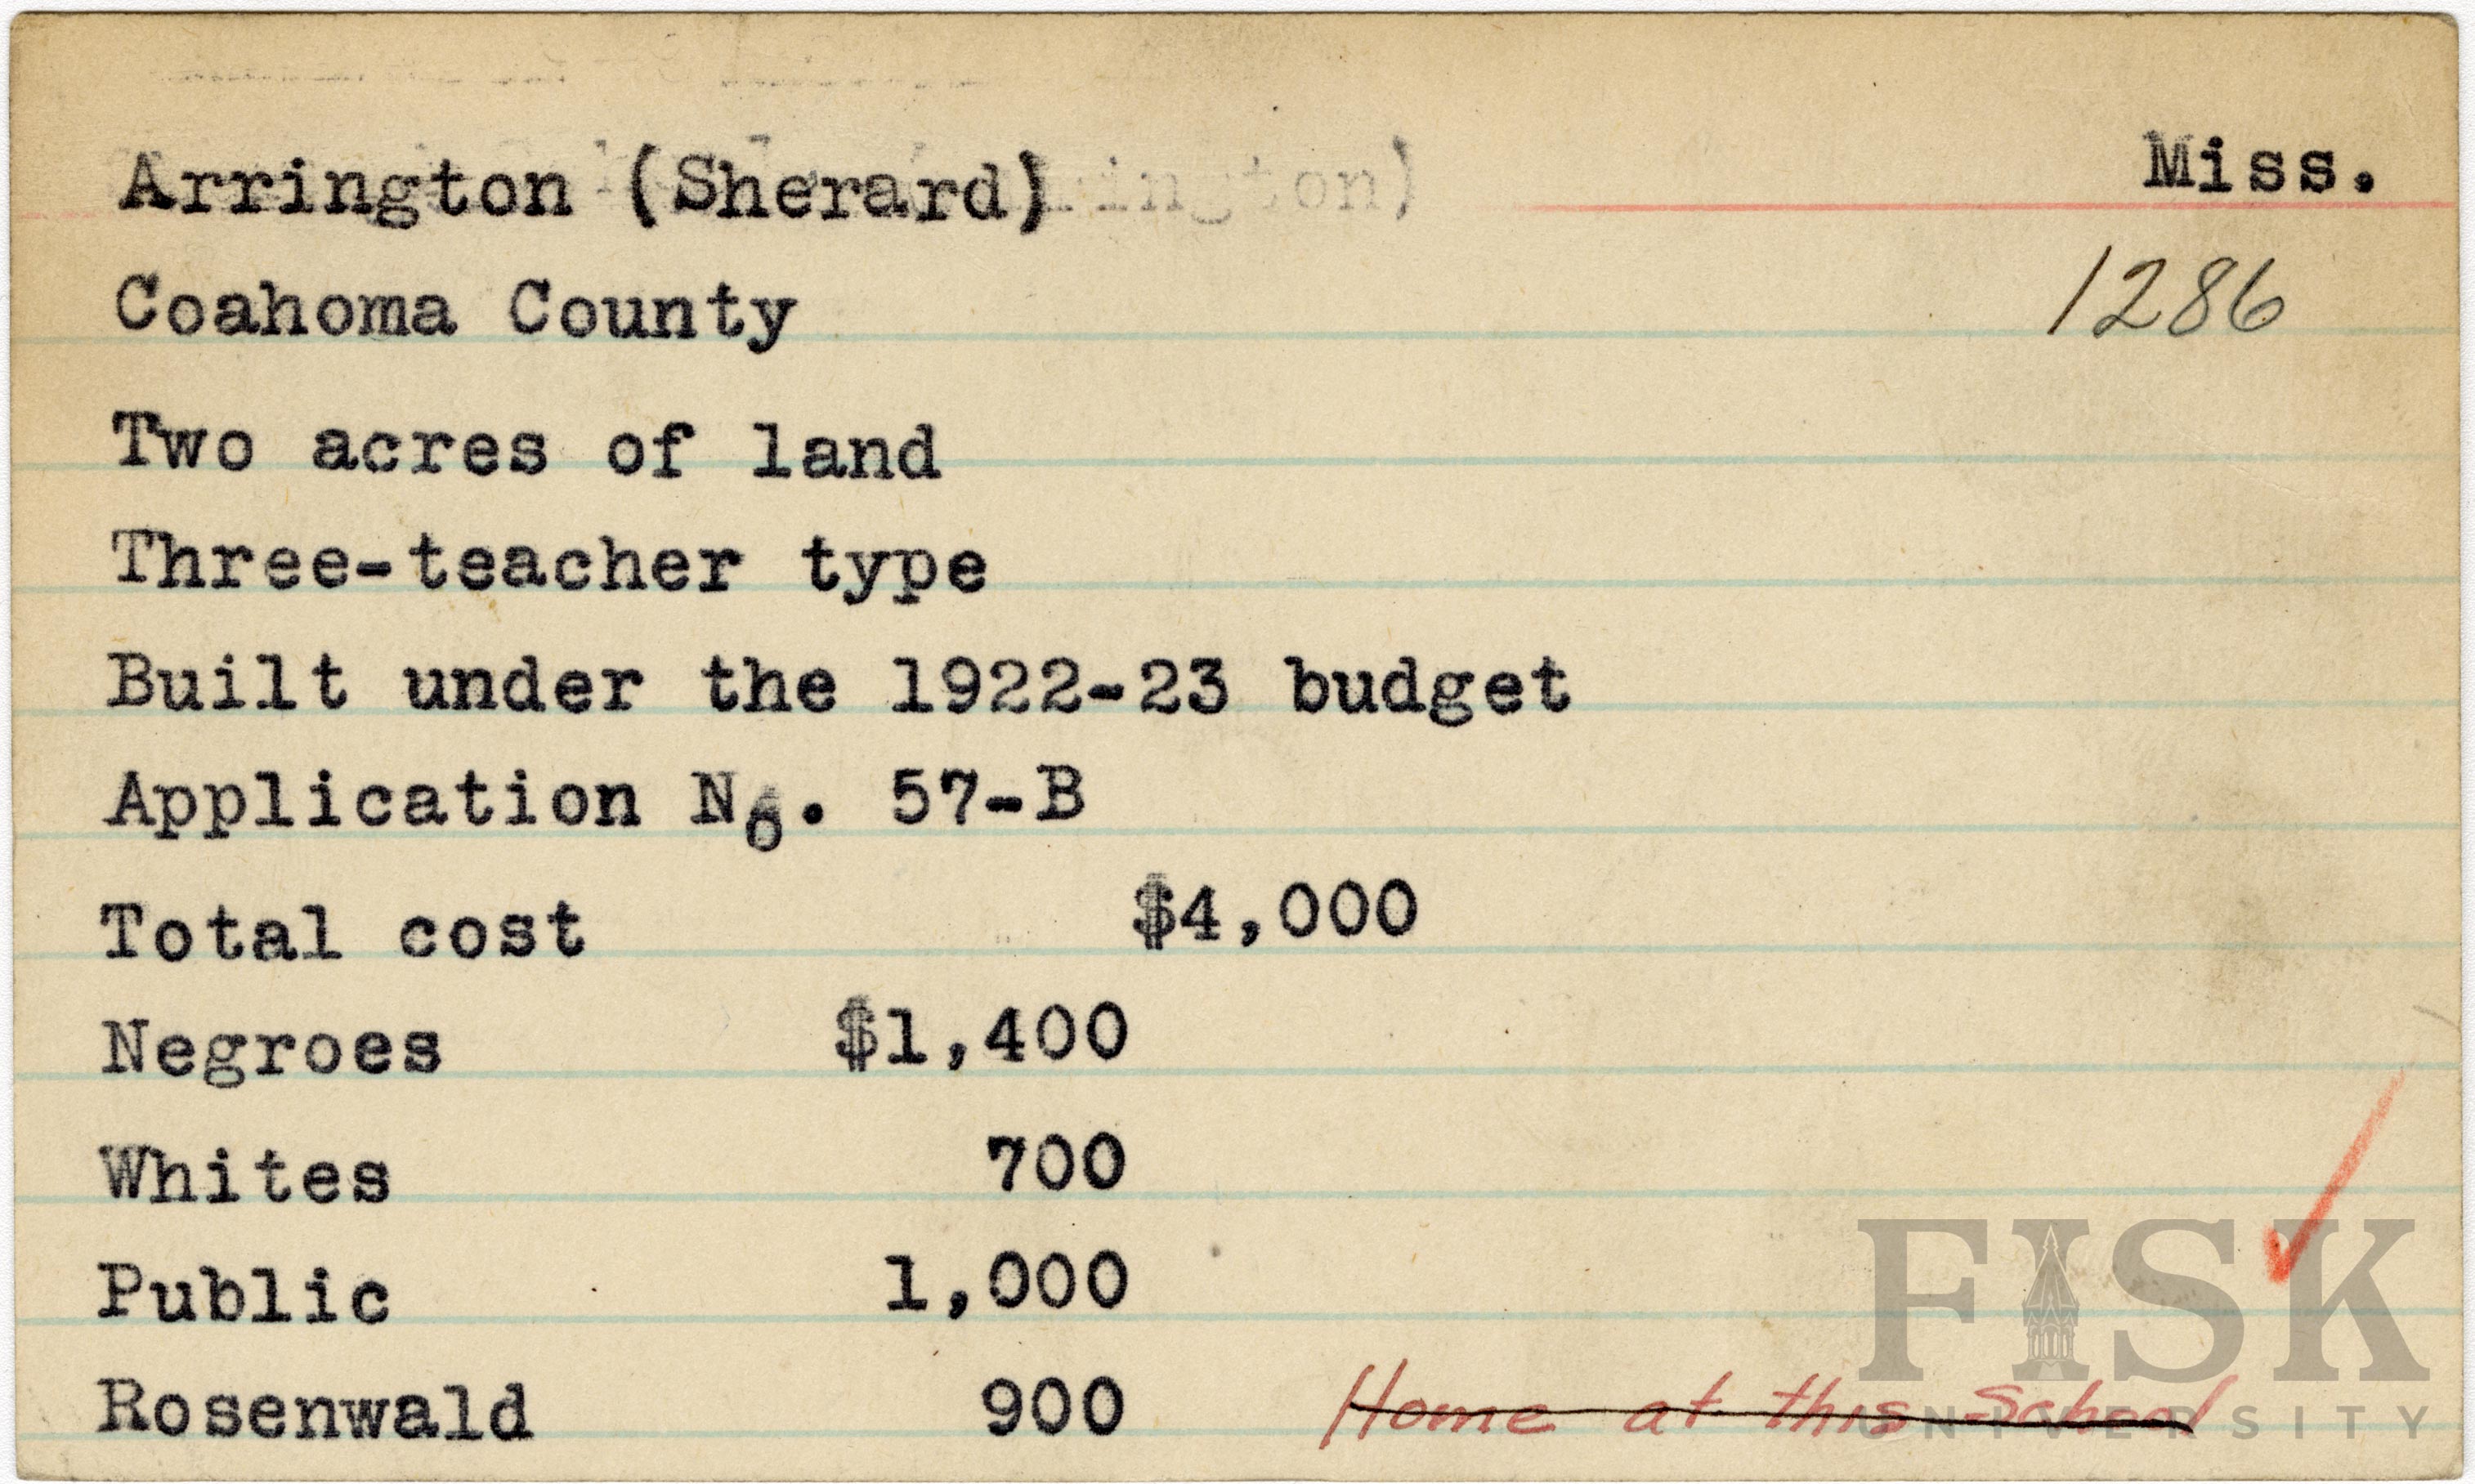 Arrington (Sherard) Miss.
1286
Coahoma County
Two acres of land
Three-teacher type
Built under the 1922-23 budget
Application No. 57-B
Total cost $4,000
Negroes $1,400
Whites 700
Public 1,000
Rosenwald 900 Home at this School
FISK
UNIVERSITY